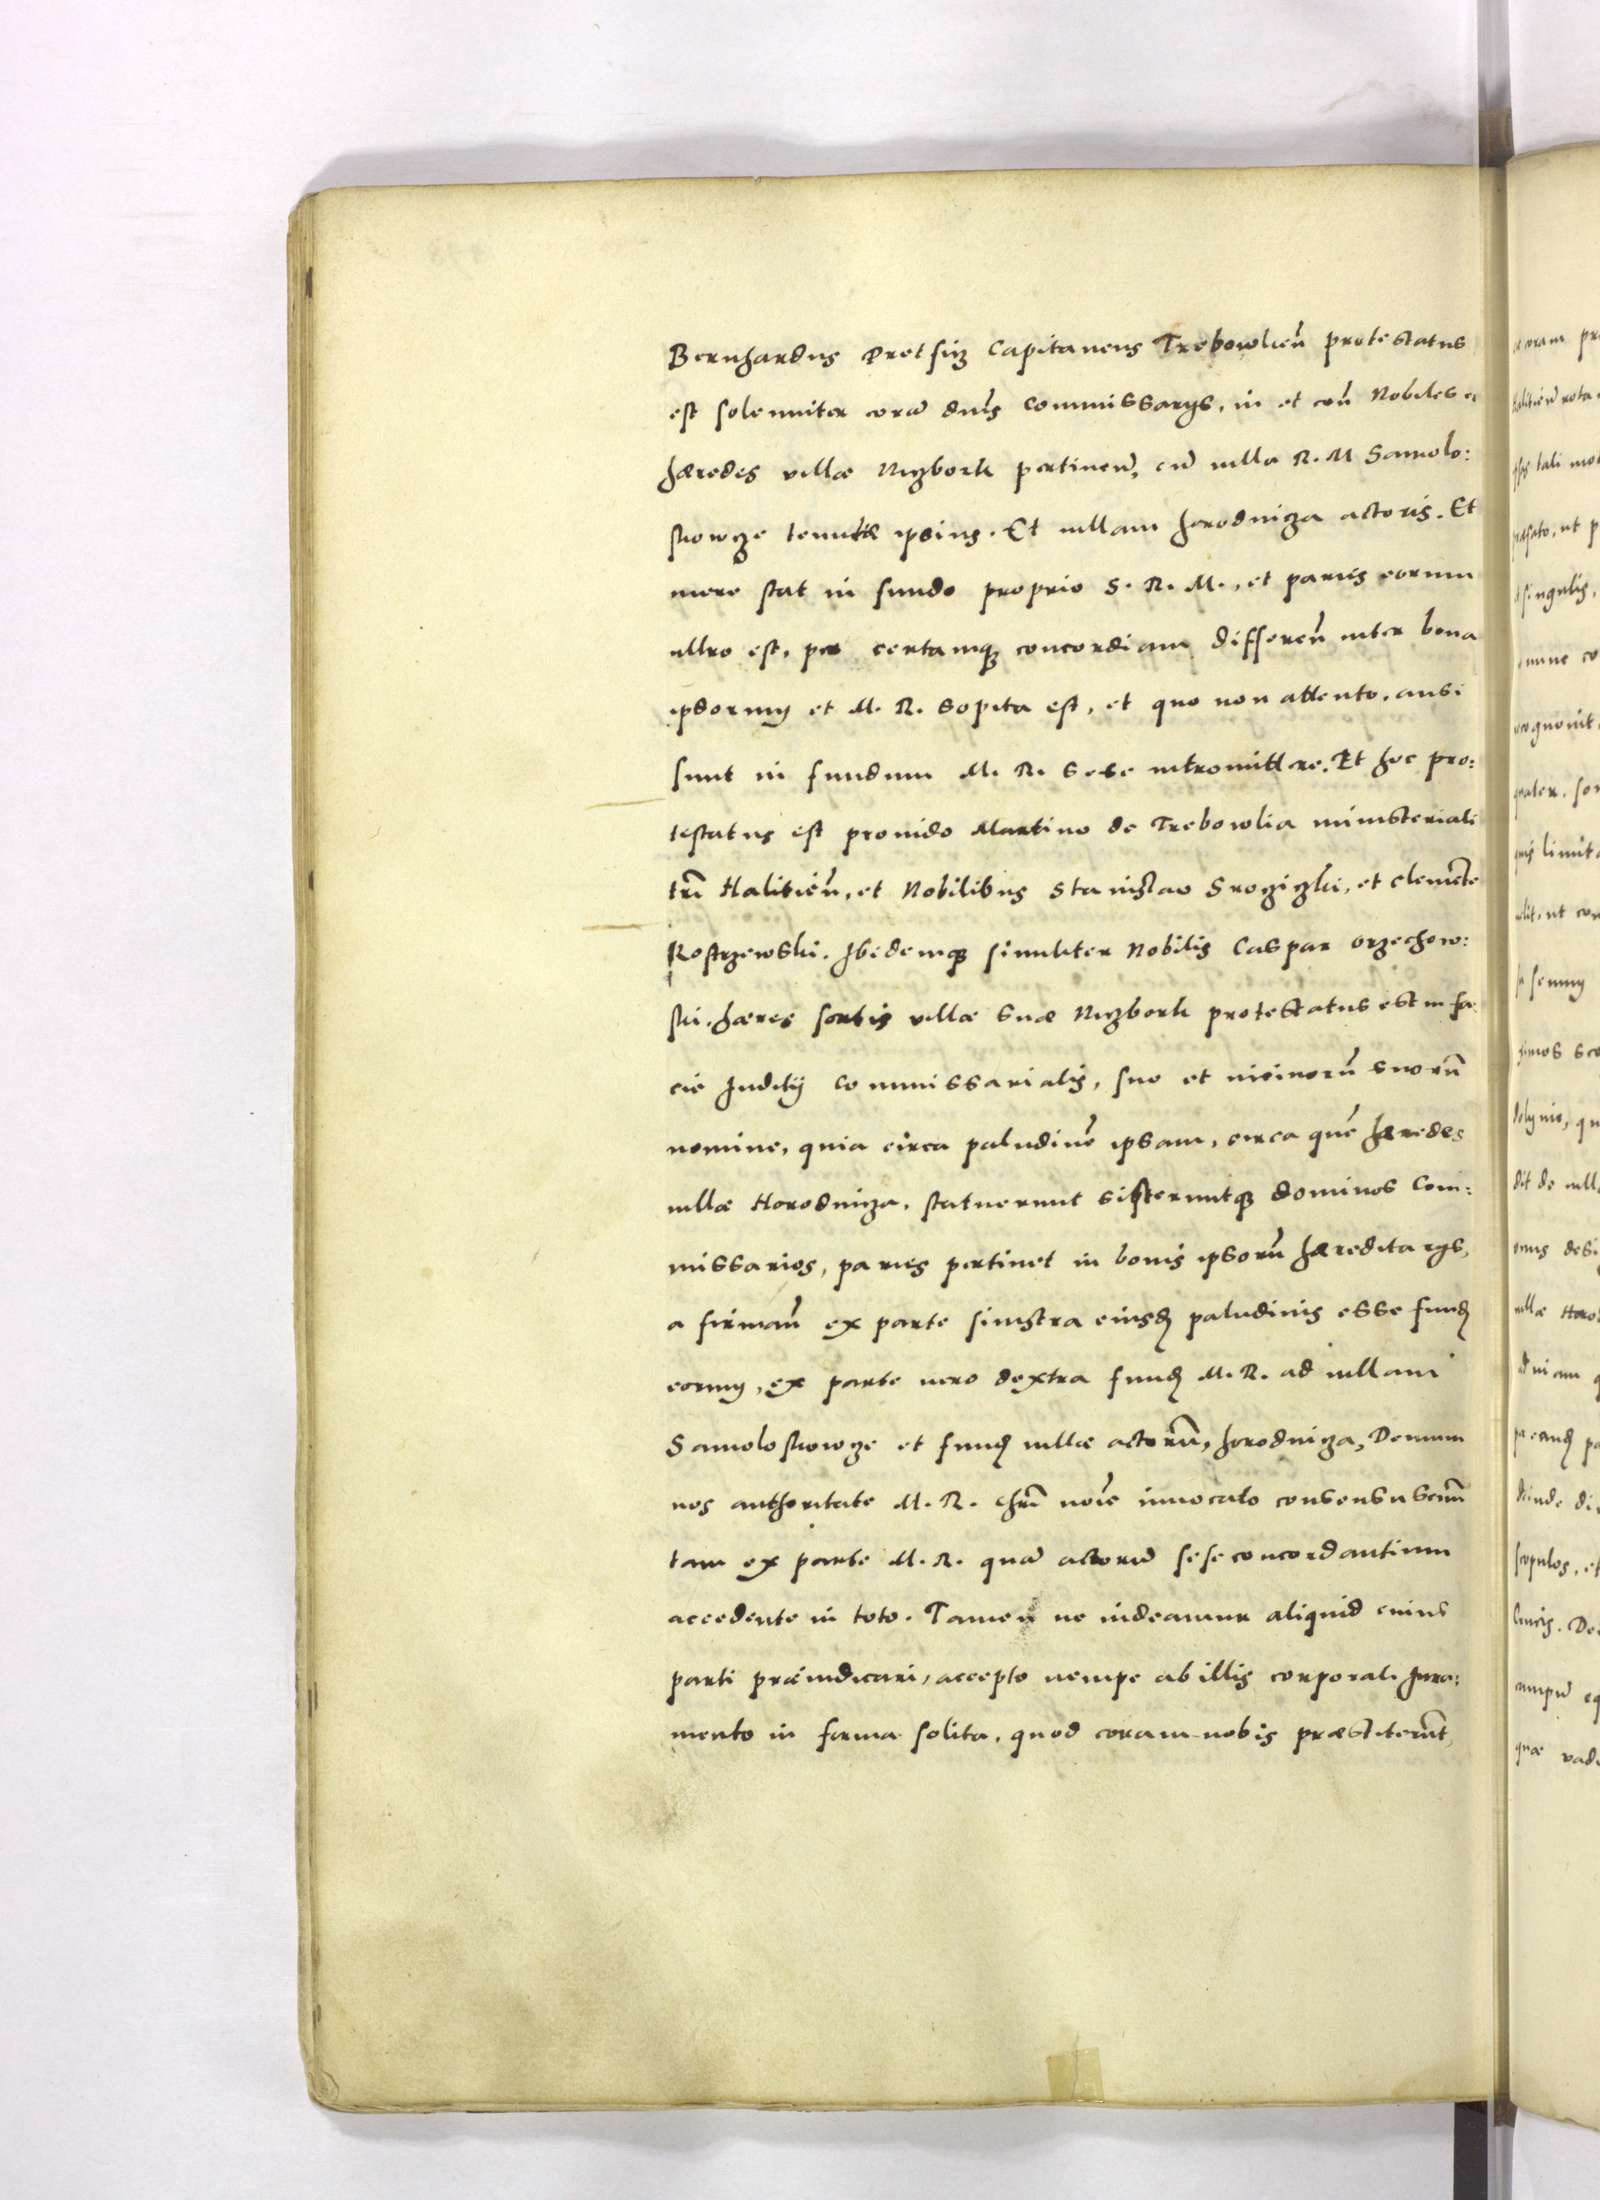 Bernhardus Pretfiz Capitaneus Trebowlien̄ protestatus
est solenniter corā dn̄is Commissarijs, in et con̄ Nobiles et
hæredes villæ Nyzbork pertinen̄, cū villa R. M Samolo:
skowze tenutæ ipsius. Et villam horodniza actoris. Et
mere stat in fundo proprio S. R. M., et paries eorum
ultro est, per certamq; concordiam differen̄ inter bona
ipsorum et M. R. sopita est, et quo non attento, ausi
sunt in fundum M. R. sese intromittere. Et hoc pro:
testatus est prouido Martino de Trebowlia ministeriali
trī Halicien̄, et Nobilibus Stanislao Srozizki, et Clemēte
Rostrzewski. Ibedemq; similiter Nobilis Caspar Orzechow:
ski, hæres sortis villæ suæ Nyzbork protestatus est in fa
cie Juditij Commissarialis, suo et uicinorū suorū
nomine, quia circa paludinē ipsam, circa quē hæredes
villæ Horodniza, statuerunt sisteruntq; dominos Com:
missarios, paries pertinet in bonis ipsorū hæreditarijs,
a firman̄ ex parte sinistra eiusd; paludinis esse fund;
eorum, ex parte uero dextra fund; M. R. ad uillam
Samoloskowze et fund; uillæ actorū, horodniza, Demum
nos authoritate M. R. chrī noīe inuocato consensu
tam ex parte M. R. quā actorū sese concordantium
accedente in toto. Tamen ne uideamur aliquid cuius
parti præiudicari, accepto nempe ab illis corporali Jura:
mento in forma solita, quod coram nobis præstiterūt,